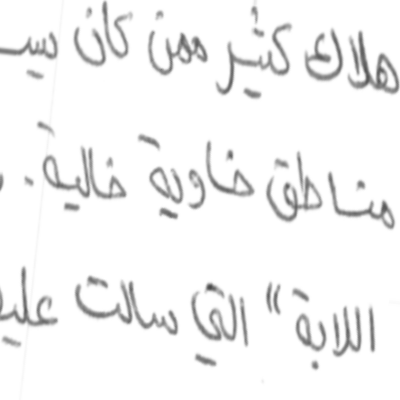 هلاك كثير ممن كان
مناطق خاوية خالية.
اللابة" التي سالت